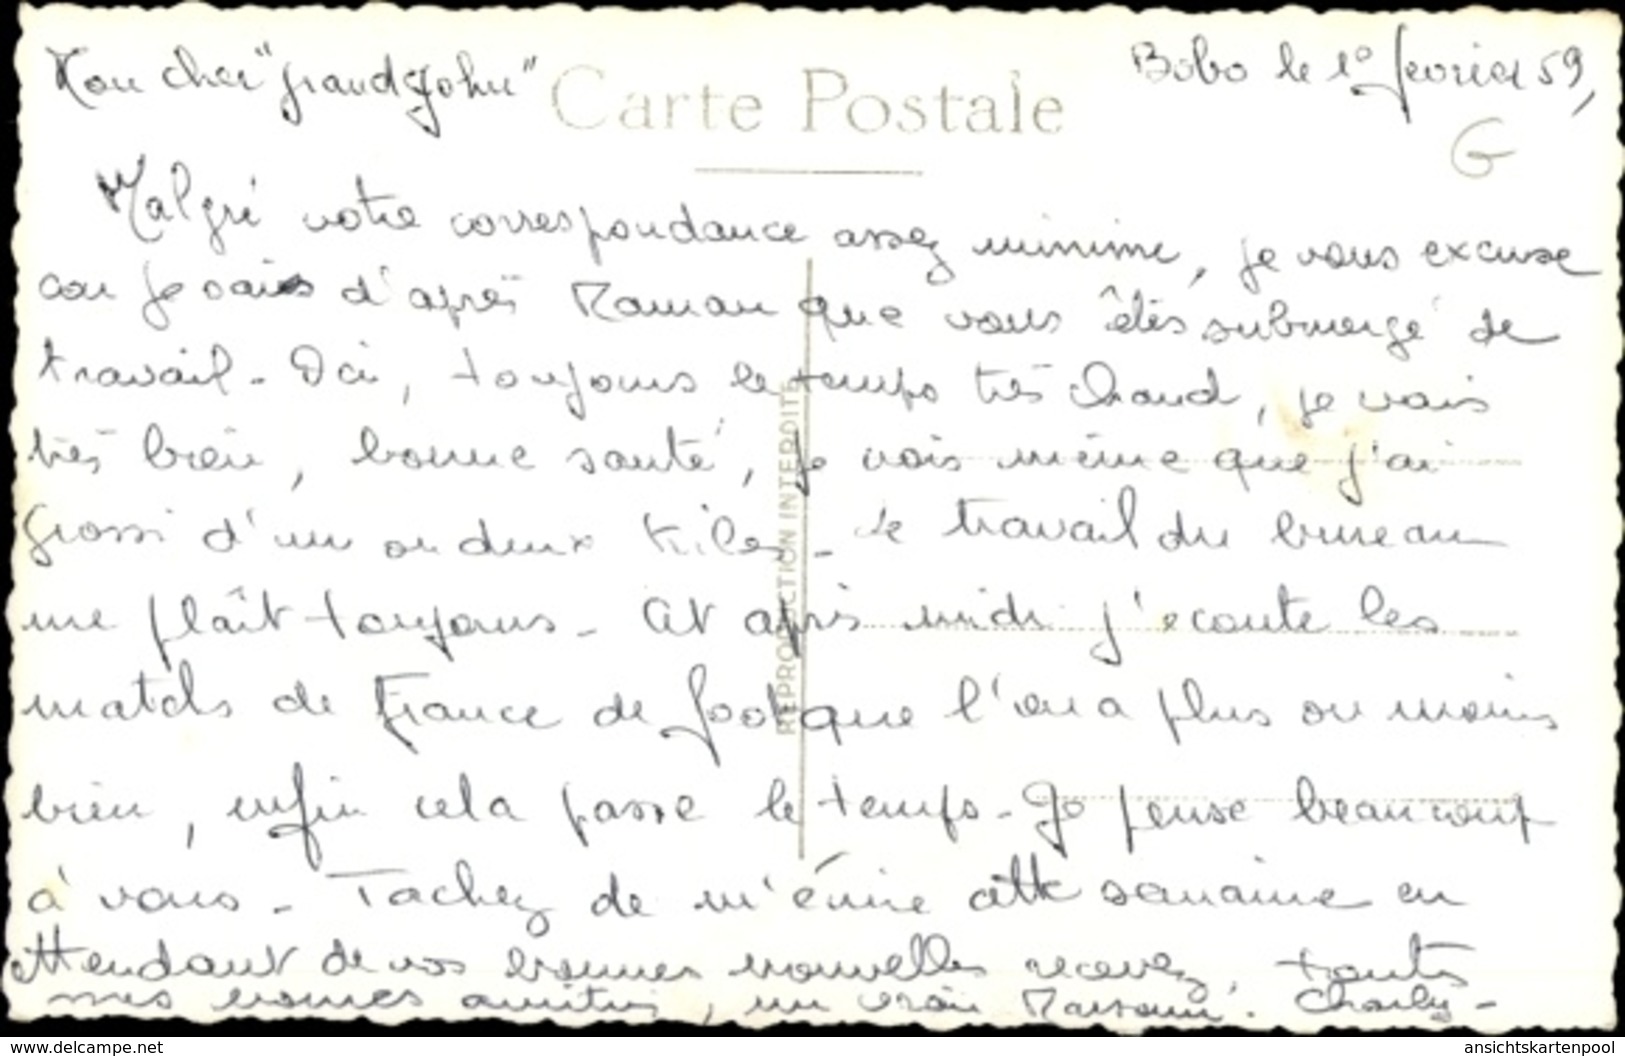 Mon cher "grand John"
Carte Postale
Bobo le 1° fevrier 59,
G
Malgré votre correspondance assez minime, je vous excuse
car je sais d'après Maman que vous êtes submergé de
travail - Ici, toujours le temps très chaud, je vais
très bien, bonne santé, je vois même que j'ai
grossi d'un ou deux kilos - Le travail du bureau
me plaît toujours - Cet après midi j'ecoute les
matchs de France de foot que l'on a plus ou moins
bien, enfin cela passe le temps - Je pense beaucoup
à vous - Tachez de m'écrire cette semaine en
attendant de vos bonnes nouvelles recevez, toutes
mes bonnes amitiés, un vrai Charly -
REPRODUCTION INTERDITE
www.delcampe.net
ansichtskartenpool